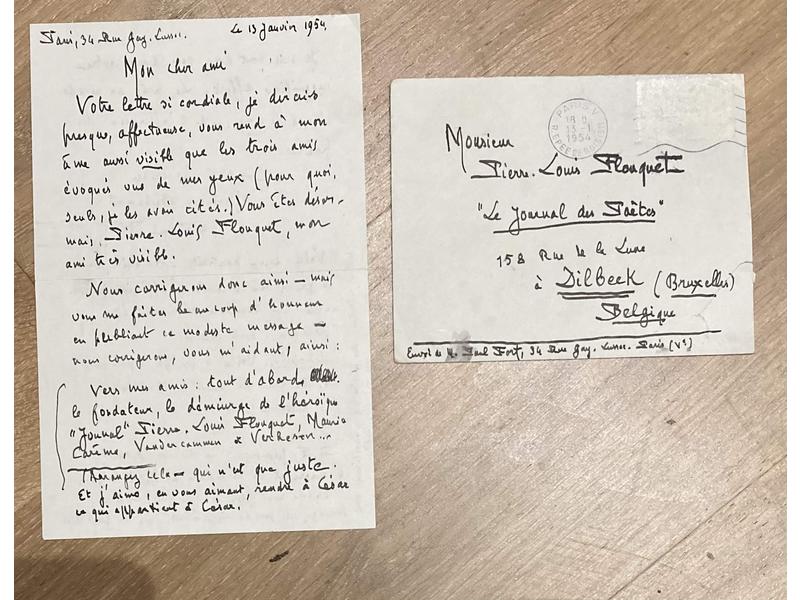 Paris, 34 Rue Gay-Lussac. Le 13 Janvier 1954
Mon cher ami
Votre lettre si cordiale, je dirais
presque, affectueuse, vous rend à mon
âme aussi visible que les trois amis
évoqués vus de mes yeux (pour quoi,
seuls, je les avais cités.) Vous êtes désor-
mais, Pierre-Louis Flouquet, mon
ami très visible.
Nous corrigerons donc ainsi — mais
vous me faites beaucoup d'honneur
en publiant ce modeste message —
nous corrigerons, vous m'aidant, ainsi :
Vers mes amis : tout d'abord
le fondateur, le démiurge de l'héroïque
"Journal" Pierre-Louis Flouquet, Maurice
Carême, Vandercammen & Verhesen...
Arrangez cela — qui n'est que juste.
Et j'aime, en vous aimant, rendre à César
ce qui appartient à César.
PARIS V
18 H
13 - 1
1954
Monsieur
Pierre-Louis Flouquet
"Le Journal des Poètes"
158 Rue de la Lune
à Dilbeek (Bruxelles)
Belgique
Envoi de M. Paul Fort, 34 Rue Gay-Lussac. Paris (Ve)